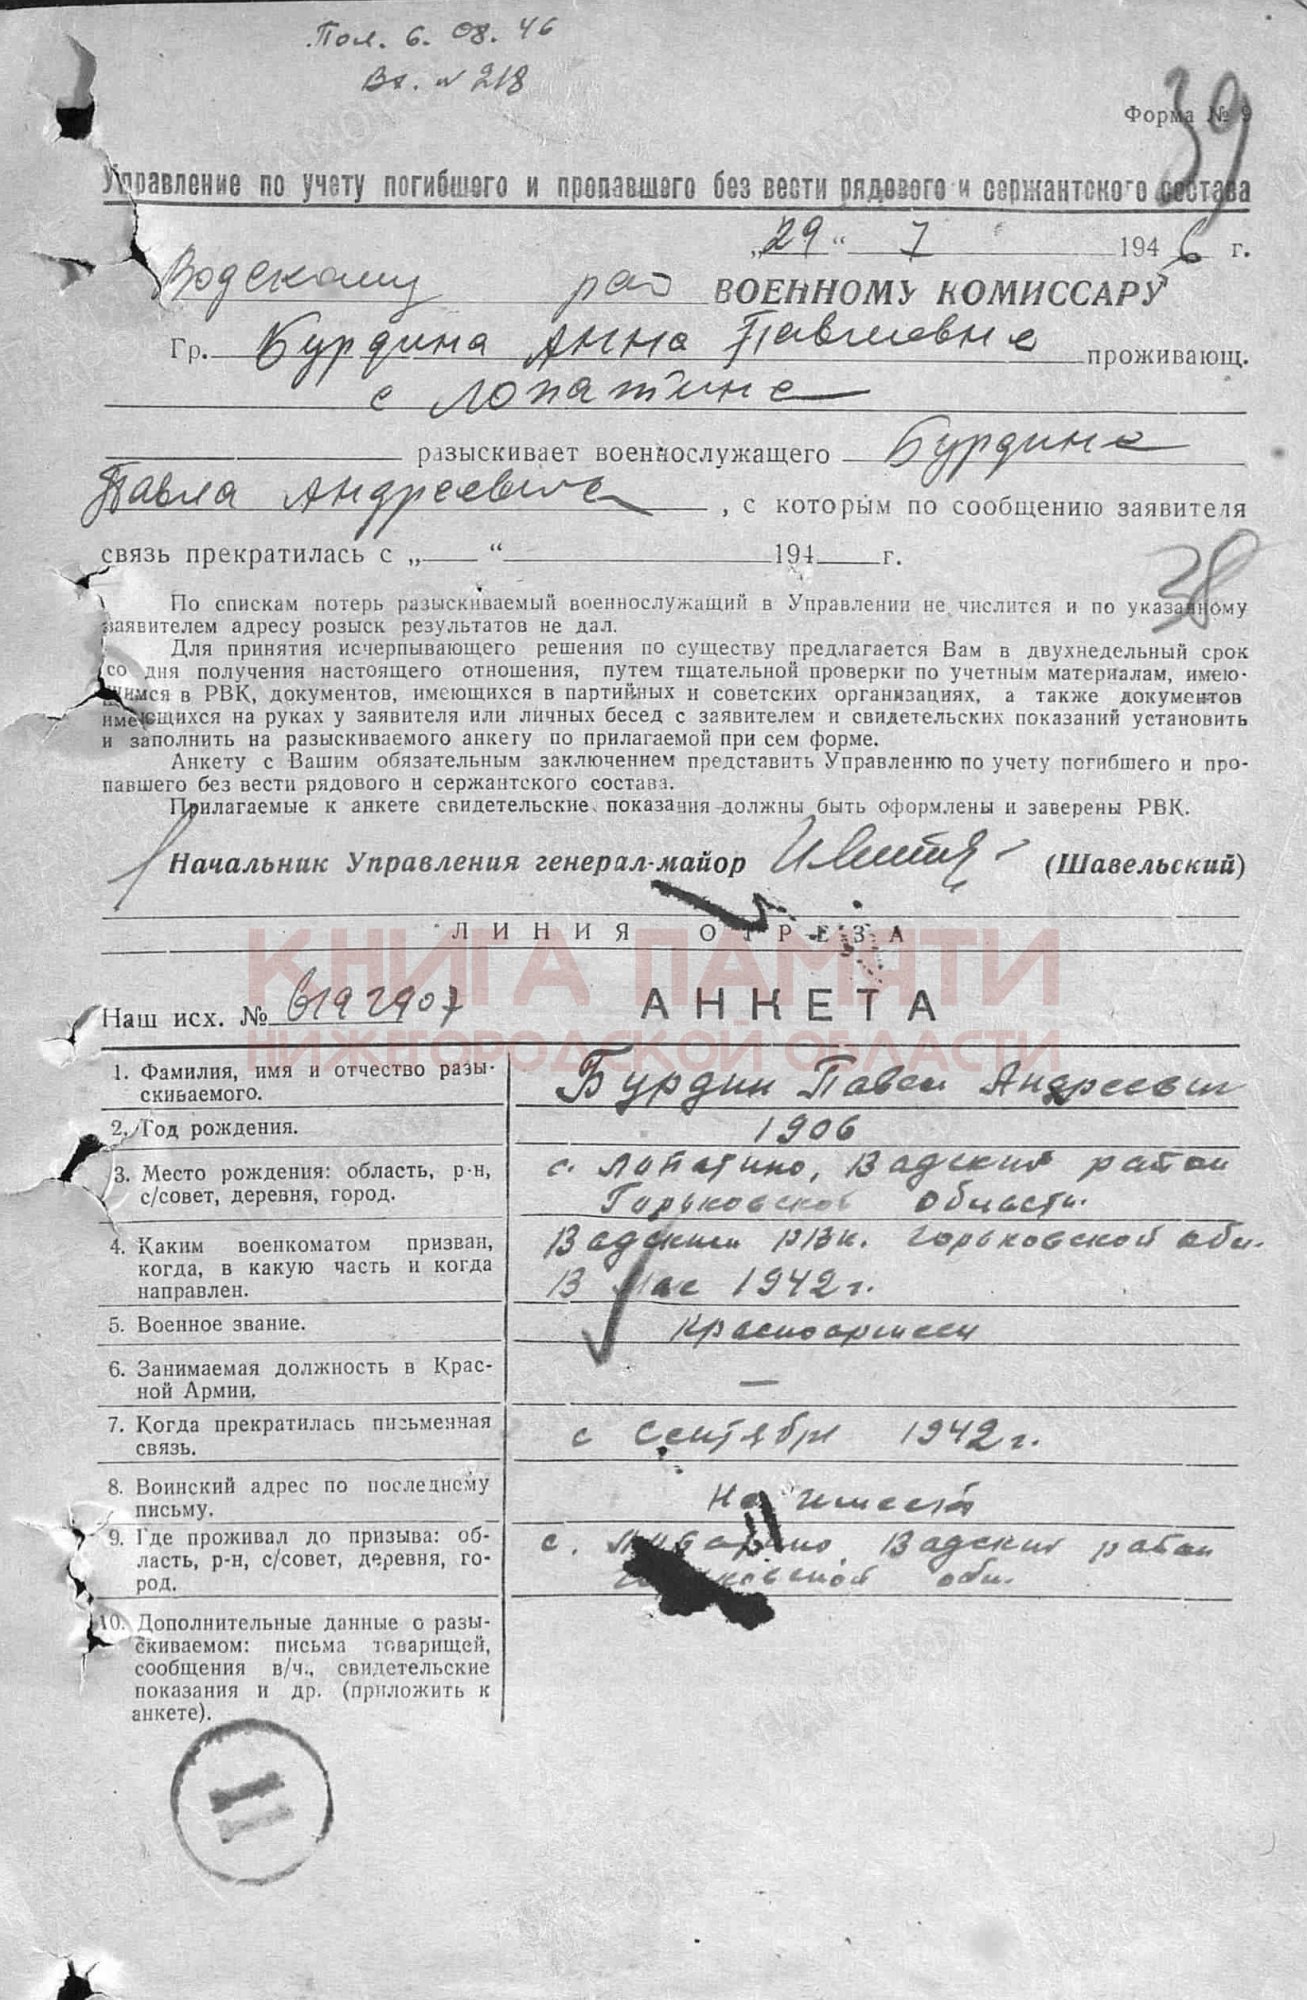 Пол. 6. 08. 46
Вх. № 218
Форма № 9
39
Управление по учету погибшего и пропавшего без вести рядового и сержантского состава
„29“ 7 1946 г.
Водскому рай ВОЕННОМУ КОМИССАРУ
Гр. Бурдина Анна Павловна проживающ.
с Лопатине
разыскивает военнослужащего Бурдина
Павла Андреевича, с которым по сообщению заявителя
связь прекратилась с „ “ 194 г.
38
По спискам потерь разыскиваемый военнослужащий в Управлении не числится и по указанному
заявителем адресу розыск результатов не дал.
Для принятия исчерпывающего решения по существу предлагается Вам в двухнедельный срок
со дня получения настоящего отношения, путем тщательной проверки по учетным материалам, имею-
щимся в РВК, документов, имеющихся в партийных и советских организациях, а также документов
имеющихся на руках у заявителя или личных бесед с заявителем и свидетельских показаний установить
и заполнить на разыскиваемого анкету по прилагаемой при сем форме.
Анкету с Вашим обязательным заключением представить Управлению по учету погибшего и про-
павшего без вести рядового и сержантского состава.
Прилагаемые к анкете свидетельские показания должны быть оформлены и заверены РВК.
Начальник Управления генерал-майор (Шавельский)
ЛИНИЯ ОТРЕЗА
КНИГА ПАМЯТИ
НИЖЕГОРОДСКОЙ ОБЛАСТИ
Наш исх. № 6192907
АНКЕТА
1. Фамилия, имя и отчество разы-
скиваемого.
Бурдин Павел Андреевич
2. Год рождения.
1906
3. Место рождения: область, р-н,
с/совет, деревня, город.
с. Лопатино, Вадский район
Горьковской области.
4. Каким военкоматом призван,
когда, в какую часть и когда
направлен.
Вадским РВК. Горьковской обл.
В мае 1942 г.
5. Военное звание.
Красноармеец
6. Занимаемая должность в Крас-
ной Армии.
—
7. Когда прекратилась письменная
связь.
с Сентября 1942 г.
8. Воинский адрес по последнему
письму.
Не имеется
9. Где проживал до призыва: об-
ласть, р-н, с/совет, деревня, го-
род.
с. Лопатино, Вадский район
Горьковской обл.
10. Дополнительные данные о разы-
скиваемом: письма товарищей,
сообщения в/ч., свидетельские
показания и др. (приложить к
анкете).